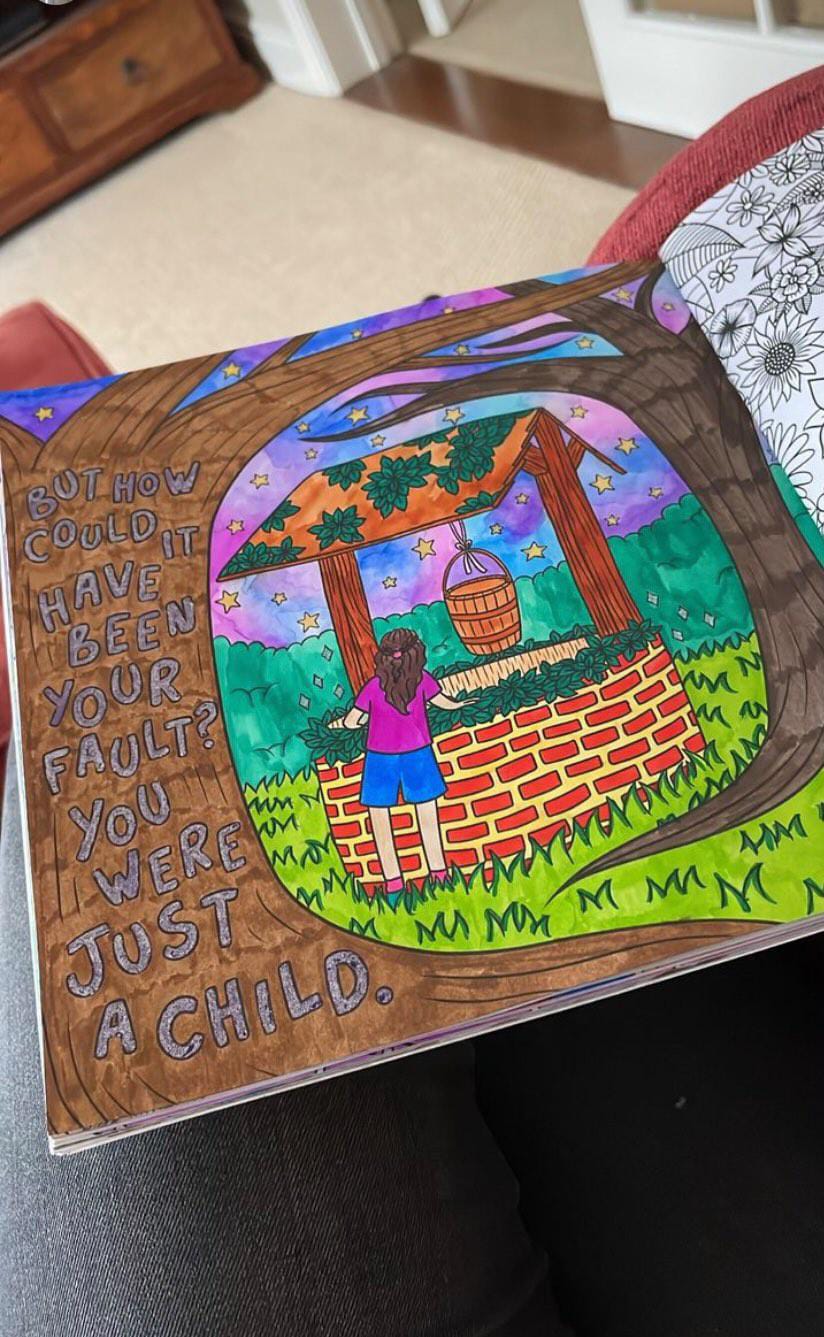 BUT HOW
COULD IT
HAVE
BEEN
YOUR
FAULT?
YOU
WERE
JUST
A CHILD.